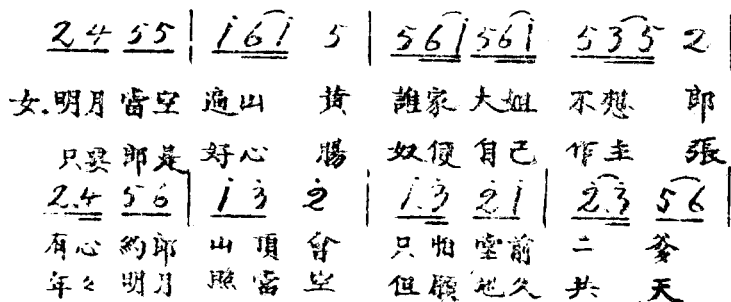 2 4 5 5 | i 6 i 5 | 5 6 i 5 6 i 5 3 5 2 |
女.明月當空 遍山 黄 誰家大姐 不想 郎
只要郎是 好心 腸 奴便自己 作主 張
2.4 5 6 | i 3 2 | i.3 2 i | 2.3 5 6
有心約郎 山頂會 只怕堂前 二爹
年々明月 照當空 但願地久 共天